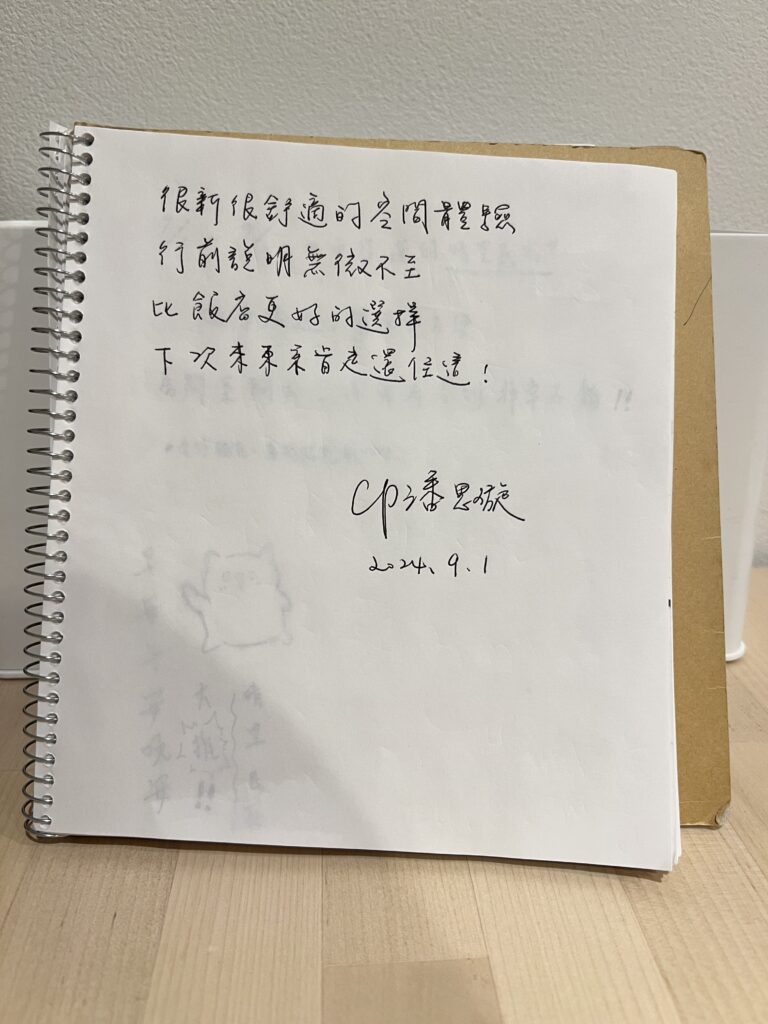 很新很舒適的空間體驗
行前說明無微不至
比飯店更好的選擇
下次來東京肯定還住這!
cp潘思璇
2024.9.1
大推!!